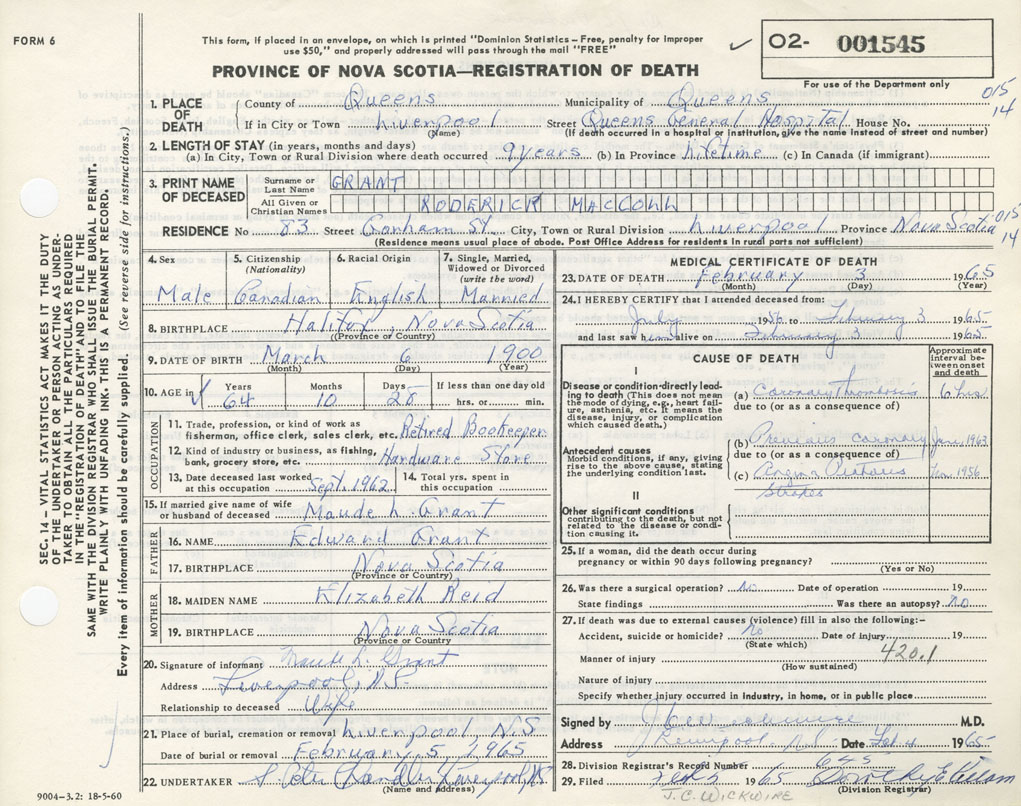 FORM 6
This form, if placed in an envelope, on which is printed "Dominion Statistics – Free, penalty for improper
use $50," and properly addressed will pass through the mail "FREE"
✓ 02- 001545
For use of the Department only
PROVINCE OF NOVA SCOTIA—REGISTRATION OF DEATH
015
14
SEC. 14 – VITAL STATISTICS ACT MAKES IT THE DUTY
OF THE UNDERTAKER OR PERSON ACTING AS UNDER-
TAKER TO OBTAIN ALL THE PARTICULARS REQUIRED
IN THE "REGISTRATION OF DEATH" AND TO FILE THE
SAME WITH THE DIVISION REGISTRAR WHO SHALL ISSUE THE BURIAL PERMIT.
WRITE PLAINLY WITH UNFADING INK. THIS IS A PERMANENT RECORD.
Every item of information should be carefully supplied. (See reverse side for instructions.)
1. PLACE OF DEATH County of Queens Municipality of Queens
If in City or Town Liverpool Street Queens General Hospital House No.
(Name) (If death occurred in a hospital or institution, give the name instead of street and number)
2. LENGTH OF STAY (in years, months and days)
(a) In City, Town or Rural Division where death occurred 9 years (b) In Province Lifetime (c) In Canada (if immigrant)
3. PRINT NAME OF DECEASED Surname or Last Name GRANT
All Given or Christian Names RODERICK MACCOLL
015
14
RESIDENCE No 83 Street Gorham St. City, Town or Rural Division Liverpool Province Nova Scotia
(Residence means usual place of abode. Post Office Address for residents in rural parts not sufficient)
4. Sex 5. Citizenship (Nationality) 6. Racial Origin 7. Single, Married, Widowed or Divorced (write the word)
Male Canadian English Married
8. BIRTHPLACE Halifax, Nova Scotia
(Province or Country)
9. DATE OF BIRTH March 6 1900
(Month) (Day) (Year)
10. AGE in Years Months Days If less than one day old
64 10 28 hrs. or min.
OCCUPATION
11. Trade, profession, or kind of work as
fisherman, office clerk, sales clerk, etc. Retired Bookeeper
12. Kind of industry or business, as fishing,
bank, grocery store, etc. Hardware Store
13. Date deceased last worked at this occupation Sept. 1962 14. Total yrs. spent in this occupation
15. If married give name of wife
or husband of deceased Maude L. Grant
FATHER
16. NAME Edward Grant
17. BIRTHPLACE Nova Scotia
(Province or Country)
MOTHER
18. MAIDEN NAME Elizabeth Reid
19. BIRTHPLACE Nova Scotia
(Province or Country)
20. Signature of informant Maude L. Grant
Address Liverpool, N.S.
Relationship to deceased Wife
21. Place of burial, cremation or removal Liverpool, N.S
Date of burial or removal February 5, 1965
22. UNDERTAKER Chandler Liverpool NS
(Name and address)
MEDICAL CERTIFICATE OF DEATH
23. DATE OF DEATH February 3 1965
(Month) (Day) (Year)
24. I HEREBY CERTIFY that I attended deceased from:
July 1956 to February 3 1965
and last saw him alive on February 3 1965
CAUSE OF DEATH
Approximate interval between onset and death
I
Disease or condition directly leading to death (This does not mean
the mode of dying, e.g., heart failure, asthenia, etc. It means the
disease, injury, or complication which caused death.)
(a) Coronary Thrombosis 6 hrs.
due to (or as a consequence of)
Antecedent causes
Morbid conditions, if any, giving rise to the above cause, stating
the underlying condition last.
(b) Previous coronary June, 1963
due to (or as a consequence of)
(c) Angina Pectoris 1956
II
Other significant conditions
contributing to the death, but not related to the disease or condition causing it.
25. If a woman, did the death occur during
pregnancy or within 90 days following pregnancy?
(Yes or No)
26. Was there a surgical operation? No Date of operation 19
State findings Was there an autopsy? No.
27. If death was due to external causes (violence) fill in also the following:-
Accident, suicide or homicide? No Date of injury 19
(State which)
420.1
Manner of injury
(How sustained)
Nature of injury
Specify whether injury occurred in industry, in home, or in public place
Signed by J C Wickwire M.D.
Address Liverpool N.S. Date Feb 4 1965
28. Division Registrar's Record Number 645
29. Filed Feb 5 1965
(Division Registrar)
J.C. WICKWIRE
9004-3.2: 18-5-60